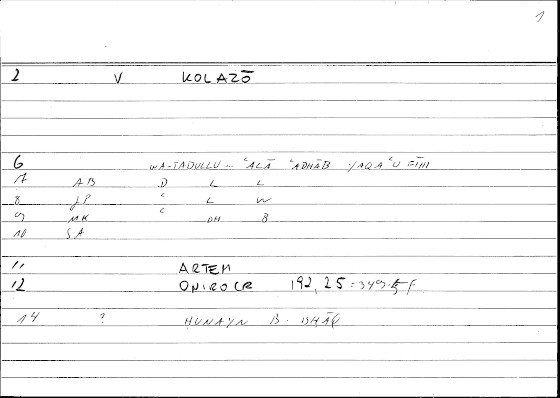 1
2 V KOLAZŌ
6 WA-TADULLU ... ʿALĀ ʿADHĀB YAQAʿU FĪHI
7 AB D L L
8 JP ʿ L W
9 MK ʿ DH B
10 SA
11 ARTEM
12 ONIROCR 192, 25 = 349
14 ? HUNAYN B. ISHĀQ